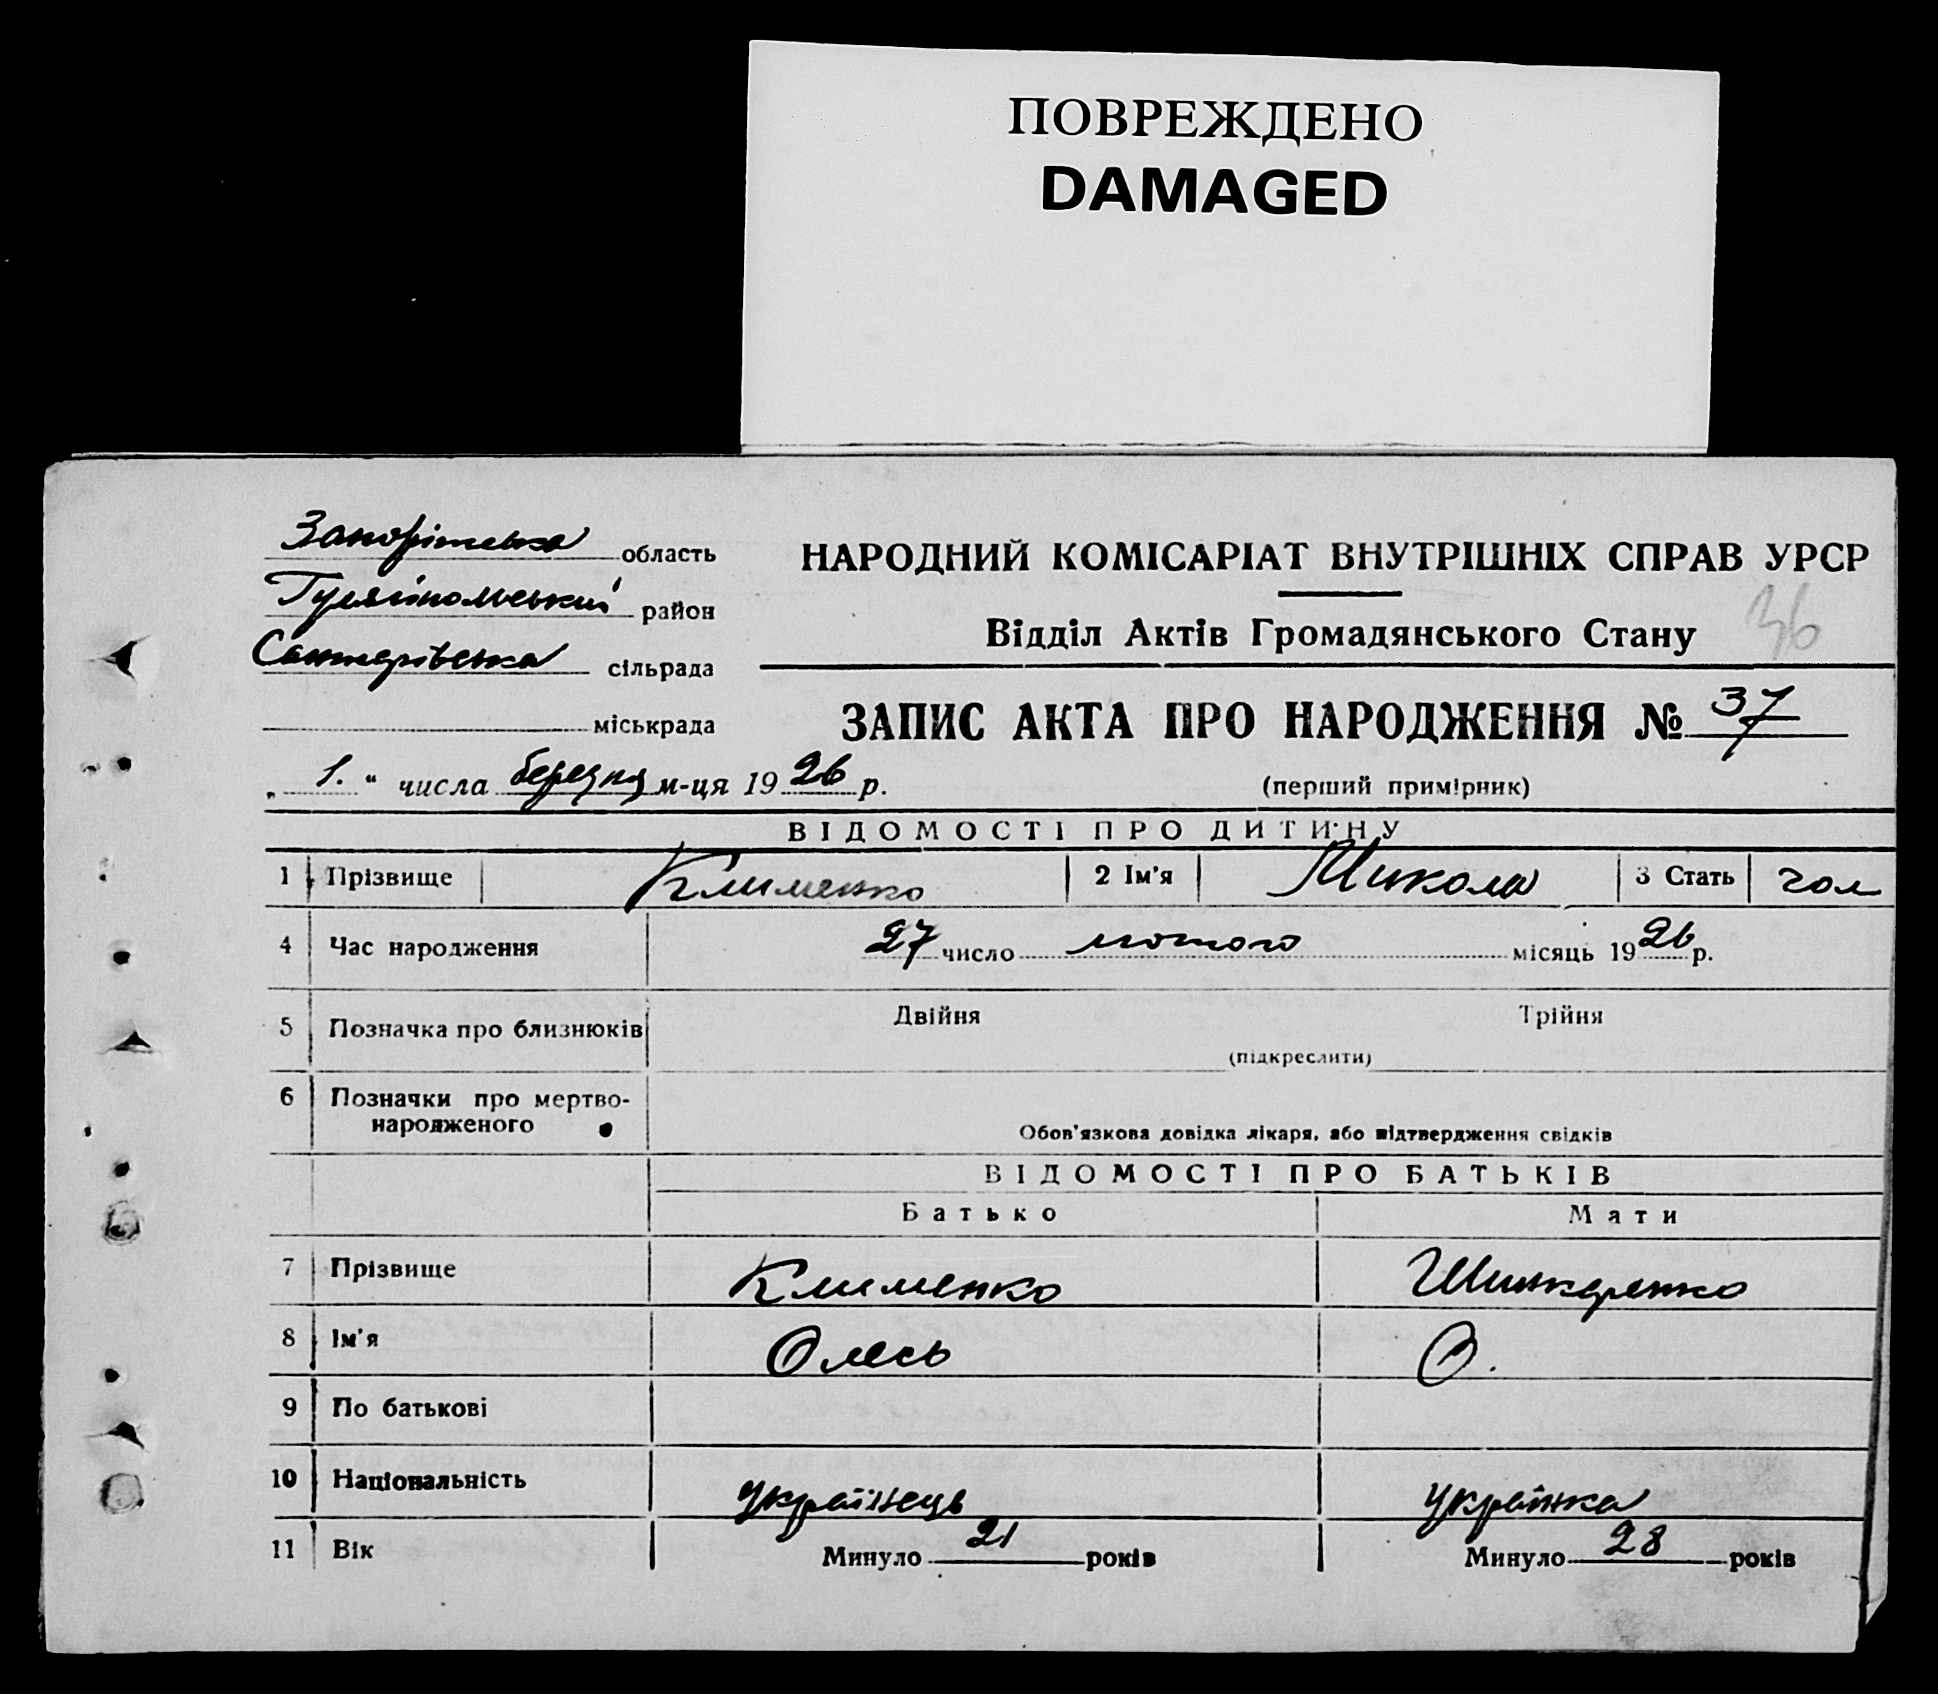 ПОВРЕЖДЕНО
DAMAGED
Запоріжська область
Гуляйпольський район
Санжарівська сільрада
міськрада
НАРОДНИЙ КОМІСАРІАТ ВНУТРІШНІХ СПРАВ УРСР
Відділ Актів Громадянського Стану 36
ЗАПИС АКТА ПРО НАРОДЖЕННЯ № 37
(перший примірник)
„ 1. “ числа березня м-ця 19 26 р.
ВІДОМОСТІ ПРО ДИТИНУ
1 Прізвище Клименко 2 Ім'я Микола 3 Стать чол
4 Час народження 27 число лютого місяць 19 26 р.
5 Позначка про близнюків Двійня Трійня
(підкреслити)
6 Позначки про мертво-
народженого
Обов'язкова довідка лікаря, або підтвердження свідків
ВІДОМОСТІ ПРО БАТЬКІВ
Батько Мати
7 Прізвище Клименко Шинкаренко
8 Ім'я Олесь О.
9 По батькові
10 Національність українець українка
11 Вік Минуло 21 років Минуло 28 років